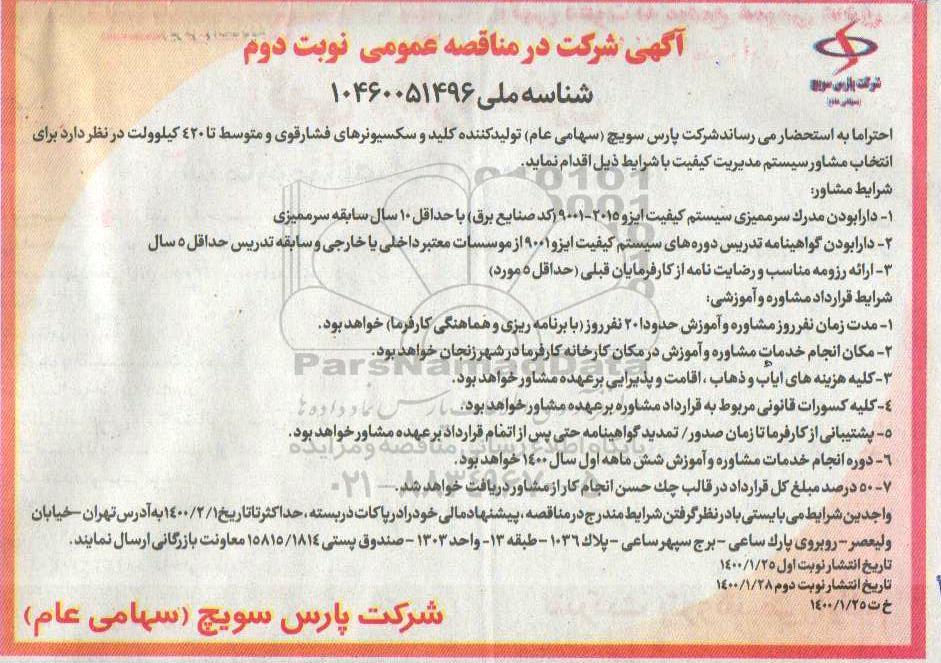 آگهی شرکت در مناقصه عمومی نوبت دوم
شرکت پارس سویچ
(سهامی عام)
شناسه ملی ۱۰۴۶۰۰۵۱۴۹۶
احتراما به استحضار می رساند شرکت پارس سویچ (سهامی عام) تولیدکننده کلید و سکسیونرهای فشارقوی و متوسط تا ۴۲۰ کیلوولت در نظر دارد برای
انتخاب مشاور سیستم مدیریت کیفیت با شرایط ذیل اقدام نماید.
شرایط مشاور:
۱- دارابودن مدرك سرممیزی سیستم کیفیت ایزو ۲۰۱۵-۹۰۰۱ (کد صنایع برق) با حداقل ۱۰ سال سابقه سرممیزی
۲- دارابودن گواهینامه تدریس دوره های سیستم کیفیت ایزو ۹۰۰۱ از موسسات معتبر داخلی یا خارجی و سابقه تدریس حداقل ۵ سال
۳- ارائه رزومه مناسب و رضایت نامه از کارفرمایان قبلی (حداقل ۵ مورد)
شرایط قرارداد مشاوره و آموزشی:
۱- مدت زمان نفرروز مشاوره و آموزش حدودا ۲۰ نفرروز (با برنامه ریزی و هماهنگی کارفرما) خواهد بود.
۲- مکان انجام خدمات مشاوره و آموزش در مکان کارخانه کارفرما در شهر زنجان خواهد بود.
۳- کلیه هزینه های ایاب و ذهاب ، اقامت و پذیرایی برعهده مشاور خواهد بود.
۴- کلیه کسورات قانونی مربوط به قرارداد مشاوره برعهده مشاور خواهد بود.
۵- پشتیبانی از کارفرما تا زمان صدور/ تمدید گواهینامه حتی پس از اتمام قرارداد برعهده مشاور خواهد بود.
۶- دوره انجام خدمات مشاوره و آموزش شش ماهه اول سال ۱۴۰۰ خواهد بود.
۷- ۵۰ درصد مبلغ کل قرارداد در قالب چك حسن انجام کار از مشاور دریافت خواهد شد.
واجدین شرایط می بایستی با در نظر گرفتن شرایط مندرج در مناقصه ، پیشنهاد مالی خود را در پاکات دربسته ، حداکثر تا تاریخ ۱۴۰۰/۲/۱ به آدرس تهران -خیابان
ولیعصر -روبروی پارك ساعی - برج سپهر ساعی - پلاك ۱۰۳۶ -طبقه ۱۳- واحد ۱۳۰۳ -صندوق پستی ۱۵۸۱۵/۱۸۱۴ معاونت بازرگانی ارسال نمایند.
تاریخ انتشار نوبت اول ۱۴۰۰/۱/۲۵
تاریخ انتشار نوبت دوم ۱۴۰۰/۱/۲۸
خ ت ۱۴۰۰/۱/۲۵
شرکت پارس سویچ (سهامی عام)
ParsNamadData
۰۲۱-۸۸۳۴۹۶۷۰